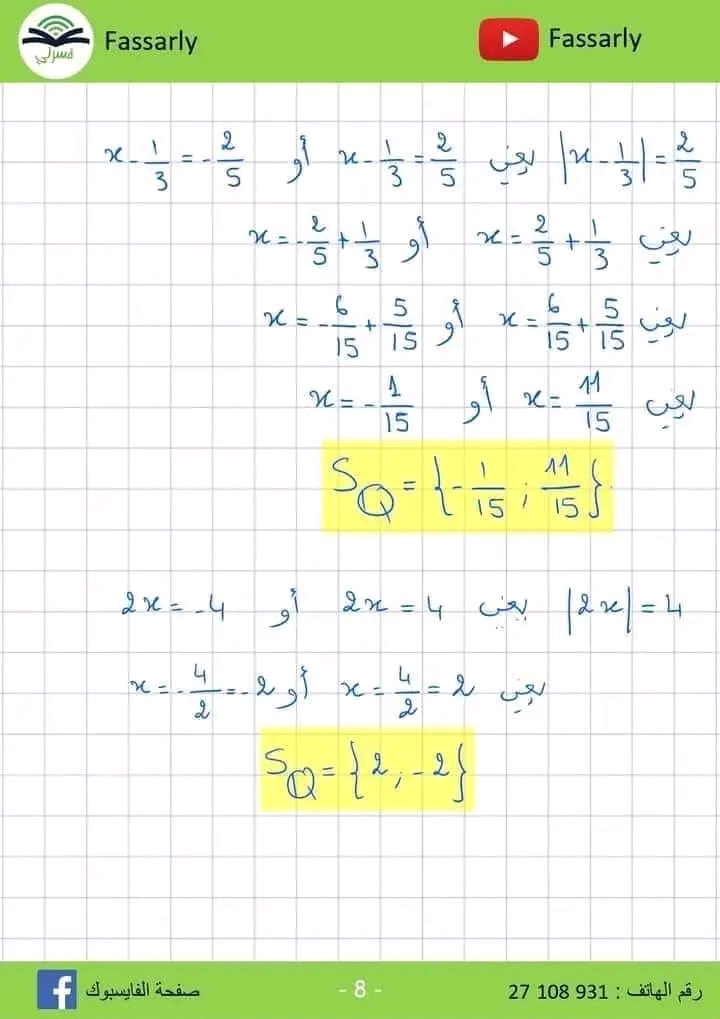 فسرلي Fassarly Fassarly
|x - 1/3| = 2/5 يعني x - 1/3 = 2/5 أو x - 1/3 = - 2/5
يعني x = 2/5 + 1/3 أو x = - 2/5 + 1/3
يعني x = 6/15 + 5/15 أو x = - 6/15 + 5/15
يعني x = 11/15 أو x = - 1/15
S_Q = {- 1/15 ; 11/15}
|2x| = 4 يعني 2x = 4 أو 2x = -4
يعني x = 4/2 = 2 أو x = - 4/2 = -2
S_Q = {2 ; -2}
رقم الهاتف : 931 108 27 - 8 - صفحة الفايسبوك